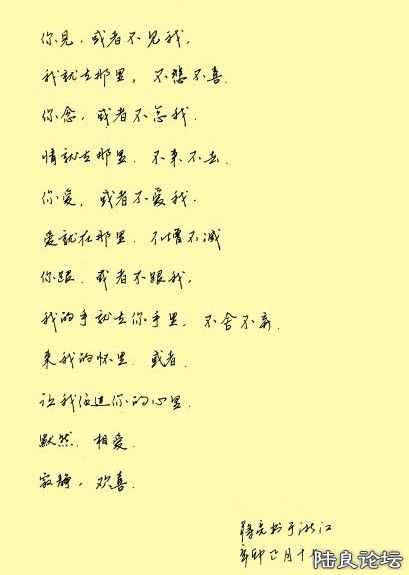 你见,或者不见我,
我就在那里,不悲不喜.
你念,或者不念我.
情就在那里.不来不去.
你爱,或者不爱我.
爱就在那里.不增不减
你跟.或者不跟我,
我的手就在你手里,不舍不弃.
来我的怀里.或者.
让我住进你的心里.
默然.相爱.
寂静,欢喜.
书于浙江
辛卯正月十
陆良论坛